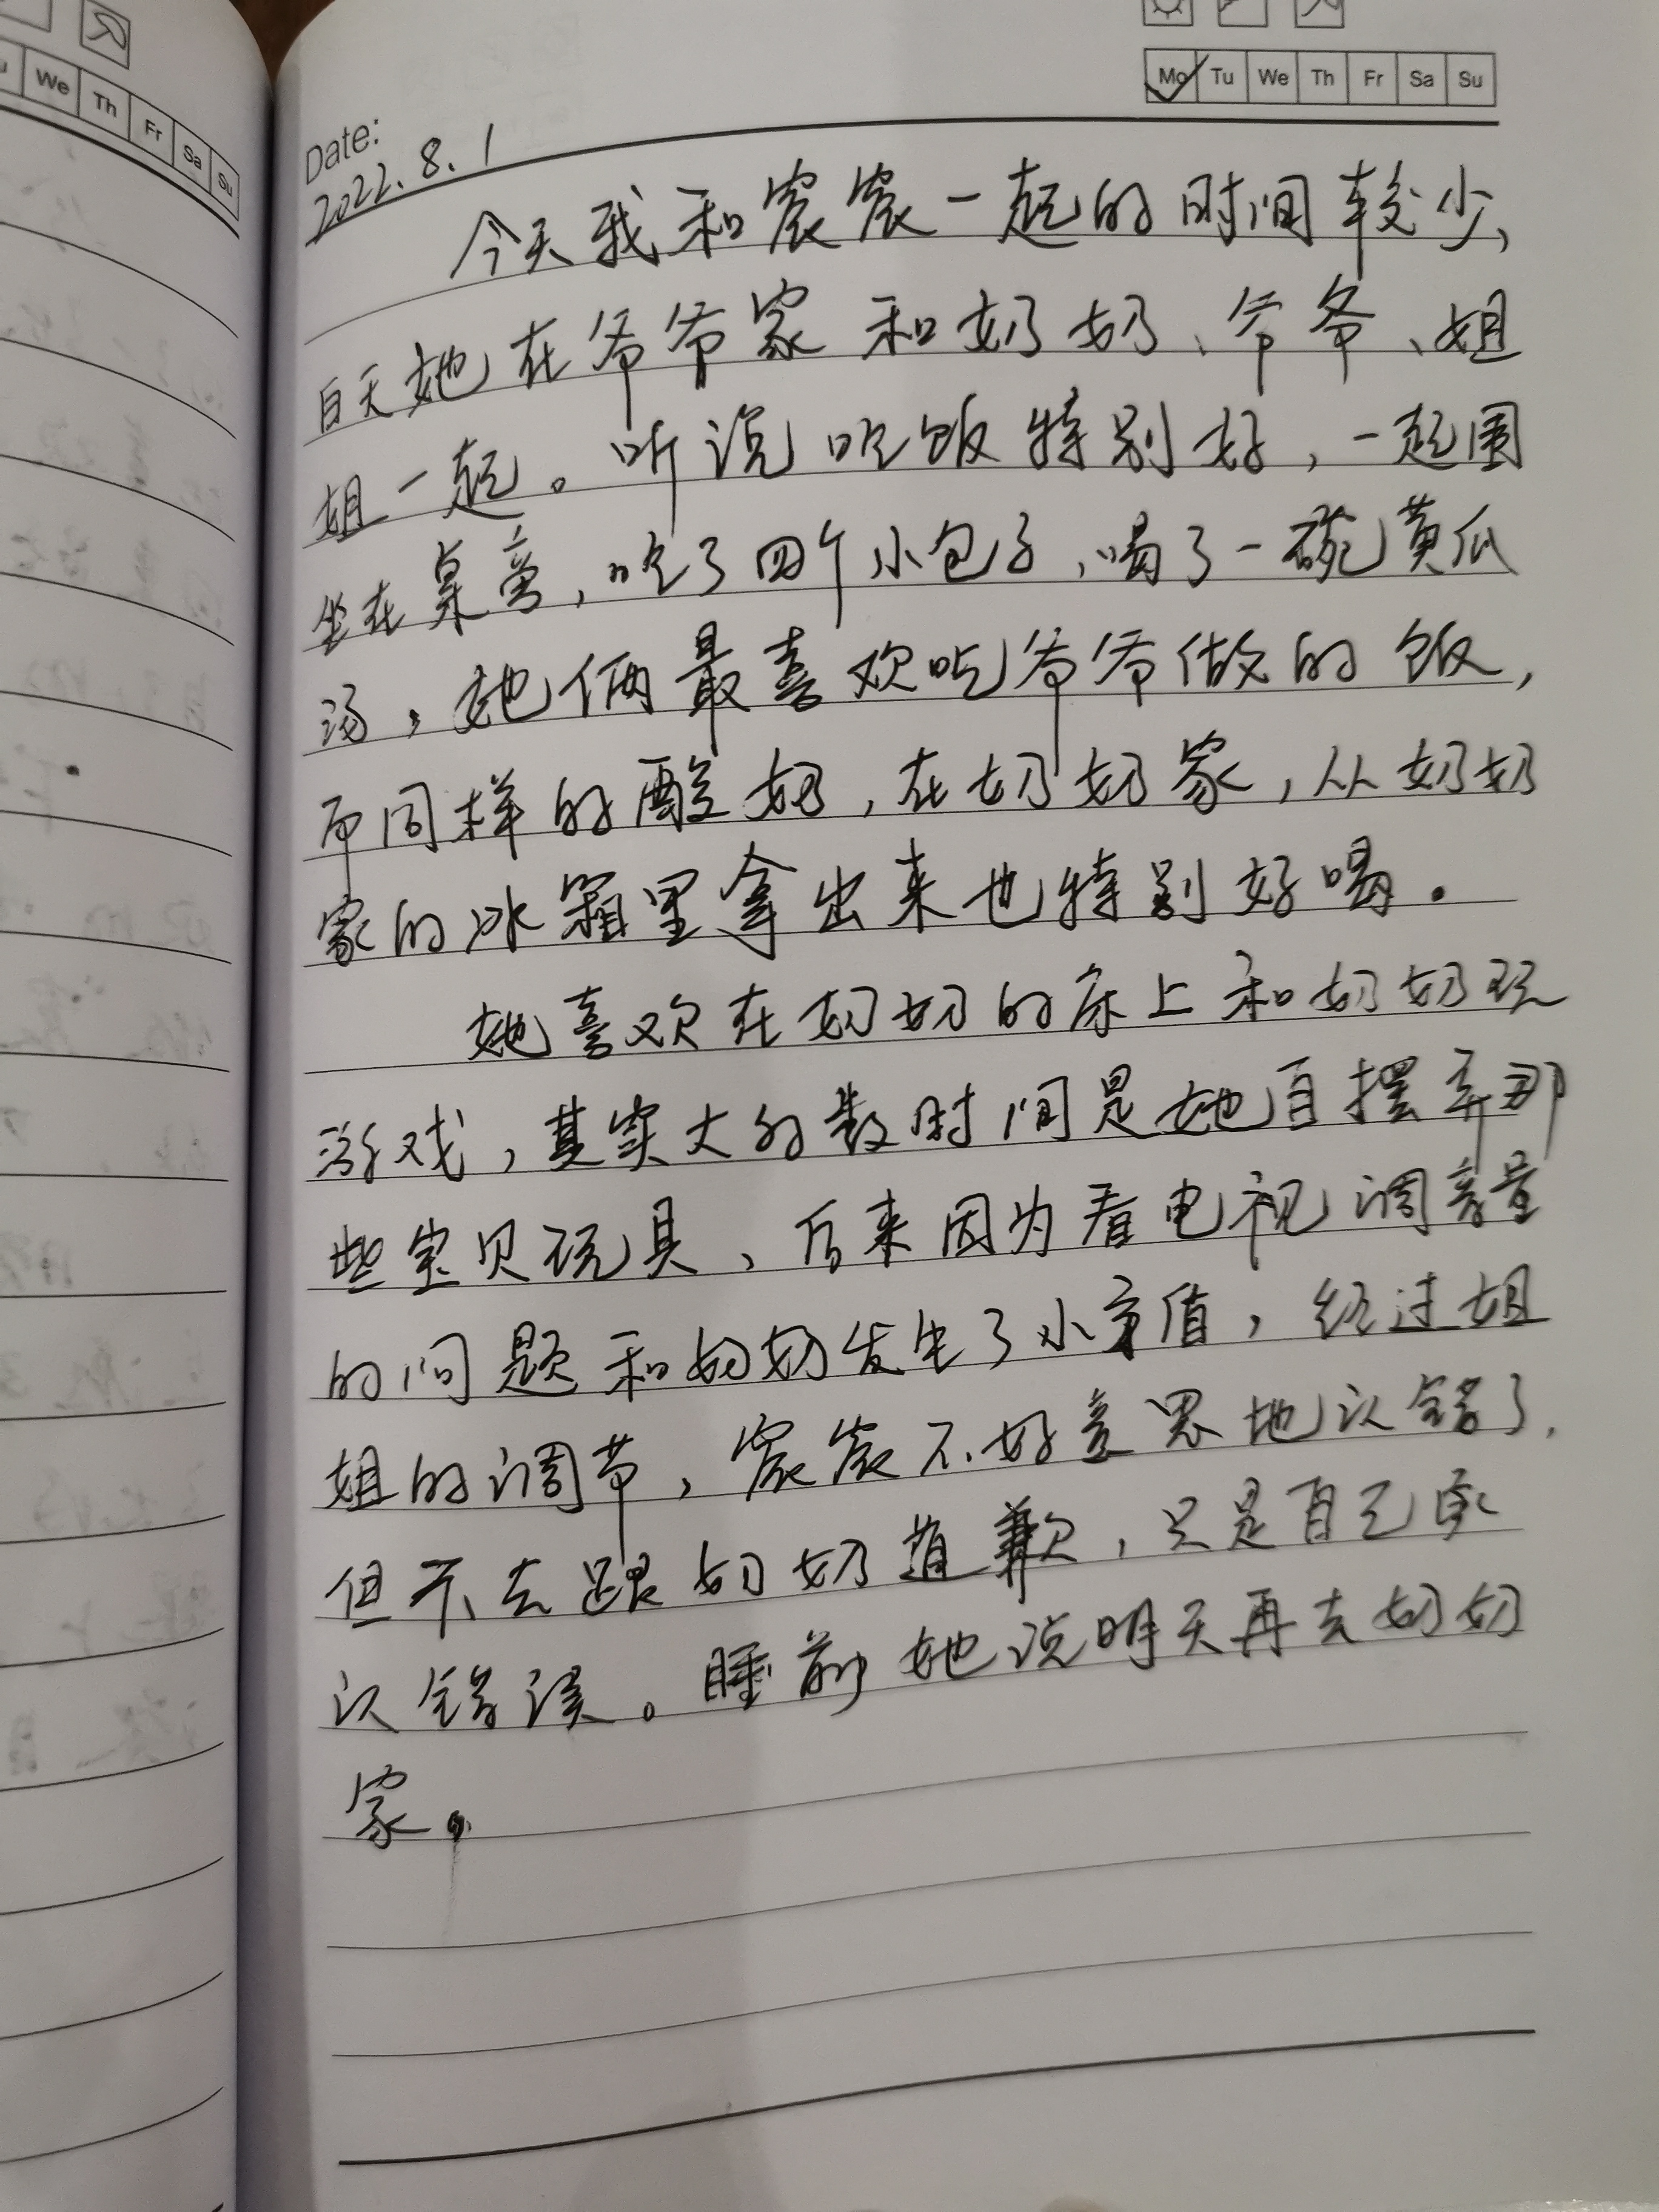 We Th Fr Sa Su
Mo Tu We Th Fr Sa Su
Date:
2022.8.1
今天我和宸宸一起的时间较少,
白天她在爷爷家和奶奶、爷爷、姐
姐一起。听说吃饭特别好,一起围
坐在桌旁,吃了四个小包子,喝了一碗黄瓜
汤,她俩最喜欢吃爷爷做的饭,
而同样的酸奶,在奶奶家,从奶奶
家的冰箱里拿出来也特别好喝.
她喜欢在奶奶的床上和奶奶玩
游戏,其实大的数时间是她自摆弄那
些宝贝玩具,后来因为看电视调音量
的问题和奶奶发生了小矛盾,经过姐
姐的调节,宸宸不好意思地认错了,
但不去跟奶奶道歉,只是自己承
认错误。睡前她说明天再去奶奶
家。